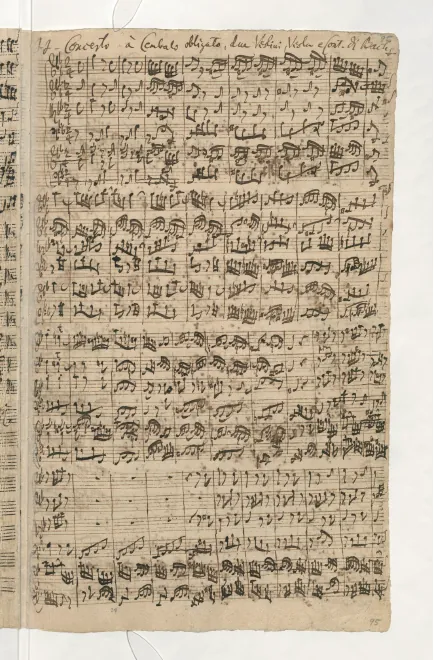 J. J. Concerto à Cembalo obligato, due Violini Viola e Cont. di Bach.
95